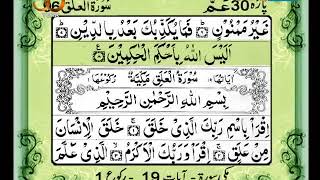 پارہ 30 عم
سورة العلق 96
غَيْرُ مَمْنُوْنٍ ۞ فَمَا يُكَذِّبُكَ بَعْدُ بِالدِّيْنِ ۞
اَلَيْسَ اللّٰهُ بِاَحْكَمِ الْحٰكِمِيْنَ ۞
سُوْرَةُ الْعَلَقِ مَكِّيَّةٌ
بِسْمِ اللّٰهِ الرَّحْمٰنِ الرَّحِيْمِ
اِقْرَاْ بِاسْمِ رَبِّكَ الَّذِيْ خَلَقَ ۞ خَلَقَ الْاِنْسَانَ
مِنْ عَلَقٍ ۞ اِقْرَاْ وَرَبُّكَ الْاَكْرَمُ ۞ الَّذِيْ عَلَّمَ
مکی سورة - آیات 19 - رکوع 1